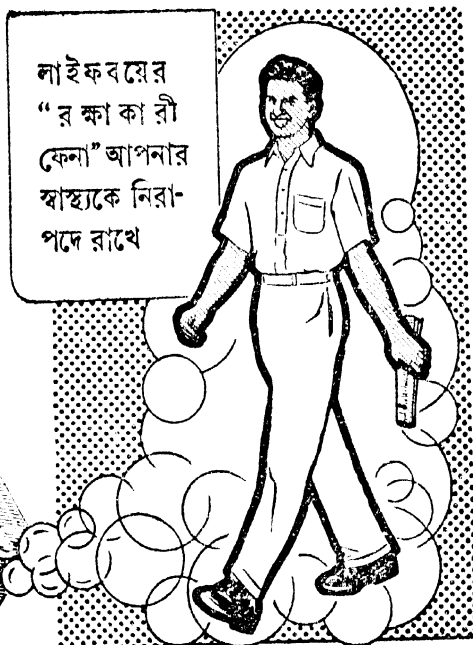 লাইফবয়ের
“র ক্ষা কা রী
ফেনা” আপনার
স্বাস্থ্যকে নিরা-
পদে রাখে